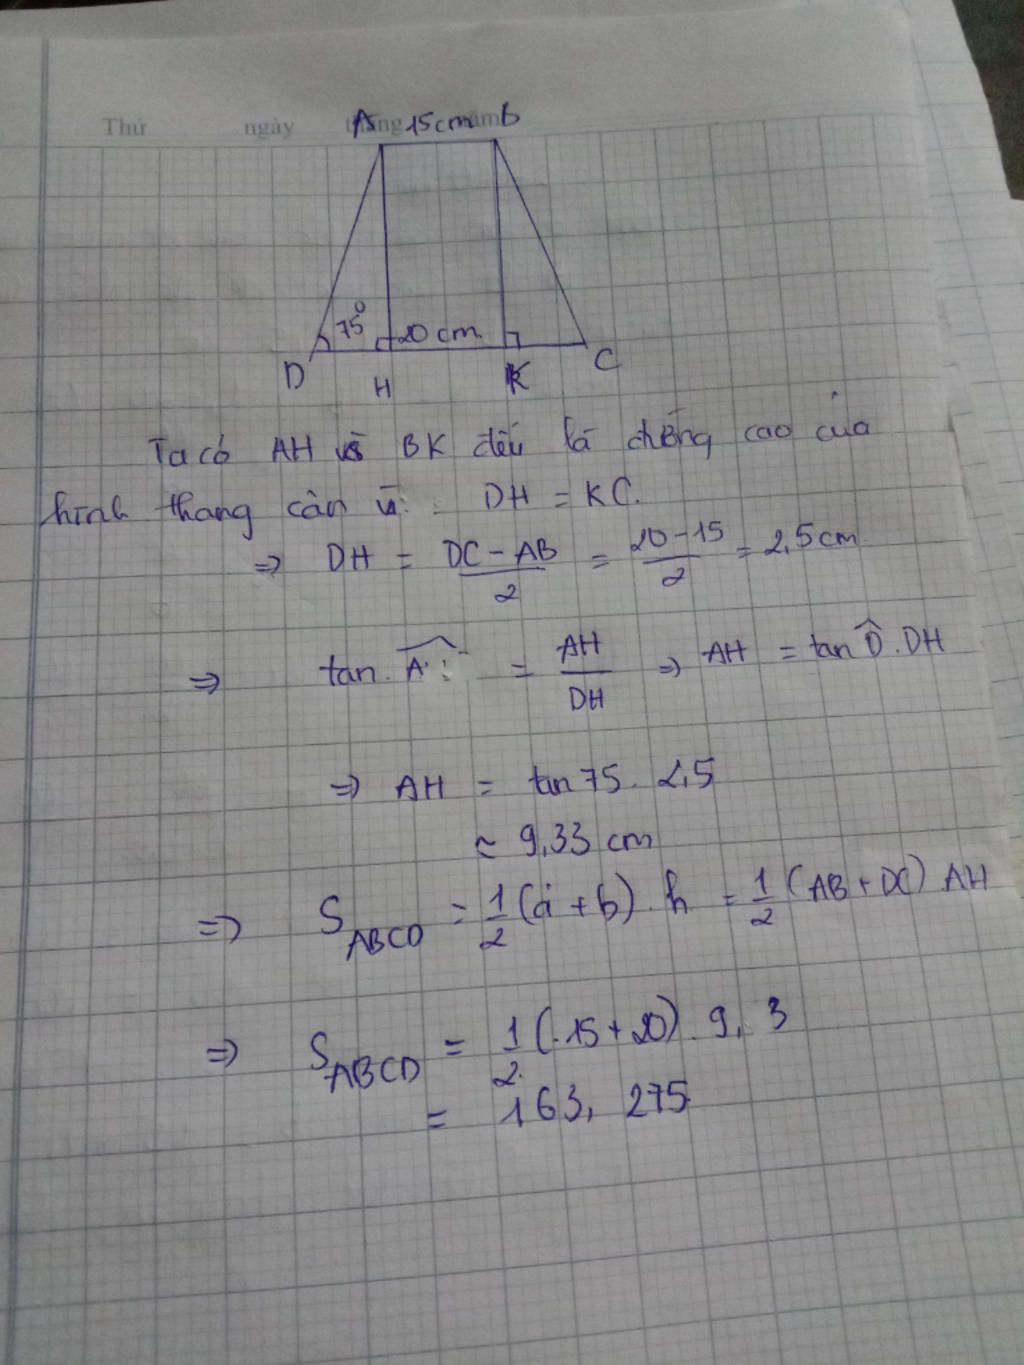 Thứ ngày tháng năm
A 15cm B
75° 20 cm
D H K C
Ta có AH và BK đều là đường cao của
hình thang cân DH = KC.
=> DH = DC - AB / 2 = 20 - 15 / 2 = 2,5 cm
=> tan = AH / DH => AH = tan D̂ . DH
=> AH = tan 75 . 2,5
≈ 9,33 cm
=> S_ABCD = 1/2 (a + b) . h = 1/2 (AB + DC) AH
=> S_ABCD = 1/2 (15 + 20) . 9, 3
= 163, 275